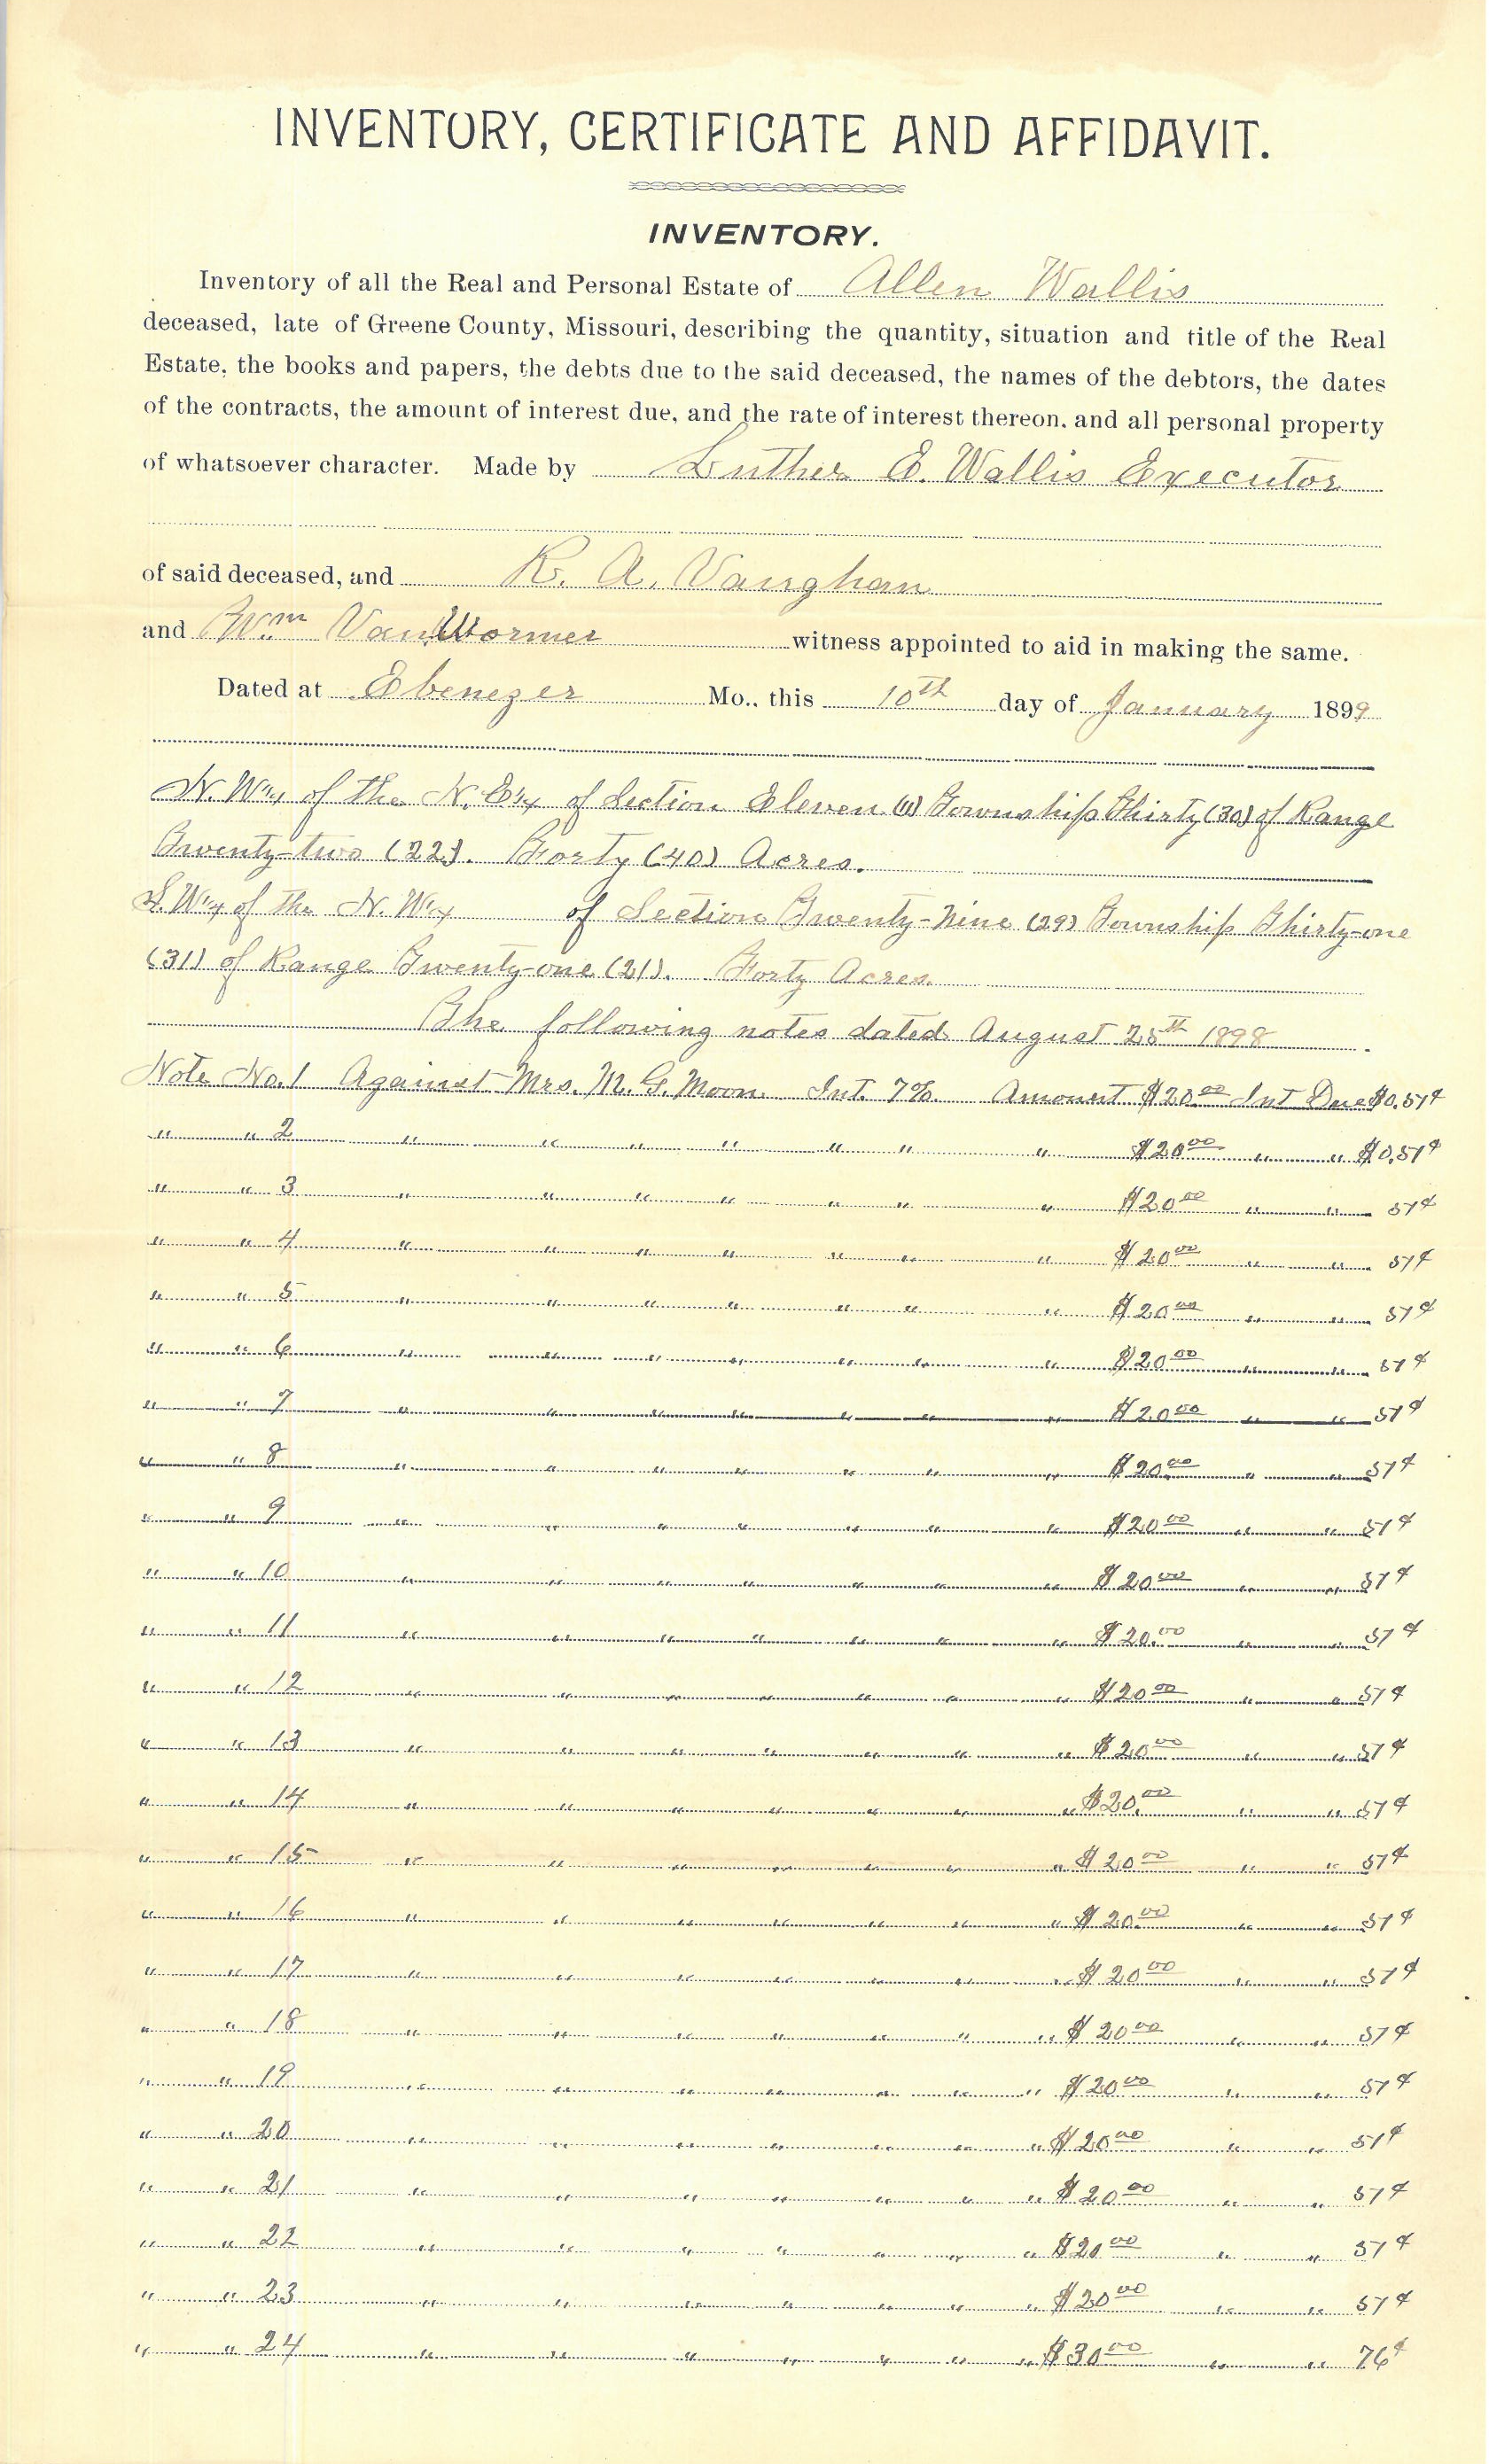 INVENTORY, CERTIFICATE AND AFFIDAVIT.
INVENTORY.
Inventory of all the Real and Personal Estate of Allen Wallis
deceased, late of Greene County, Missouri, describing the quantity, situation and title of the Real
Estate, the books and papers, the debts due to the said deceased, the names of the debtors, the dates
of the contracts, the amount of interest due, and the rate of interest thereon, and all personal property
of whatsoever character. Made by Luther E. Wallis Executor
of said deceased, and R. A. Vaughan
and Wm VanWormer witness appointed to aid in making the same.
Dated at Ebenezer Mo., this 10th day of January 1899
N.W. 1/4 of the N.E. 1/4 of Section Eleven (11) Township Thirty (30) of Range
Twenty-two (22). Forty (40) Acres.
S.W. 1/4 of the N.W. 1/4 of Section Twenty-Nine (29) Township Thirty-one
(31) of Range Twenty-one (21). Forty Acres.
The following notes dated August 25th 1898
Note No. 1 Against Mrs. M. G. Moon. Int. 7%. Amount $20.00 Int Due $0.51¢
" " 2 " " " " " " " $20.00 " " $0.51¢
" " 3 " " " " " " " $20.00 " " 51¢
" " 4 " " " " " " " $20.00 " " 51¢
" " 5 " " " " " " " $20.00 " " 51¢
" " 6 " " " " " " " $20.00 " " 51¢
" " 7 " " " " " " " $20.00 " " 51¢
" " 8 " " " " " " " $20.00 " " 51¢
" " 9 " " " " " " " $20.00 " " 51¢
" " 10 " " " " " " " $20.00 " " 51¢
" " 11 " " " " " " " $20.00 " " 51¢
" " 12 " " " " " " " $20.00 " " 51¢
" " 13 " " " " " " " $20.00 " " 51¢
" " 14 " " " " " " " $20.00 " " 51¢
" " 15 " " " " " " " $20.00 " " 51¢
" " 16 " " " " " " " $20.00 " " 51¢
" " 17 " " " " " " " $20.00 " " 51¢
" " 18 " " " " " " " $20.00 " " 51¢
" " 19 " " " " " " " $20.00 " " 51¢
" " 20 " " " " " " " $20.00 " " 51¢
" " 21 " " " " " " " $20.00 " " 51¢
" " 22 " " " " " " " $20.00 " " 51¢
" " 23 " " " " " " " $20.00 " " 51¢
" " 24 " " " " " " " $30.00 " " 76¢